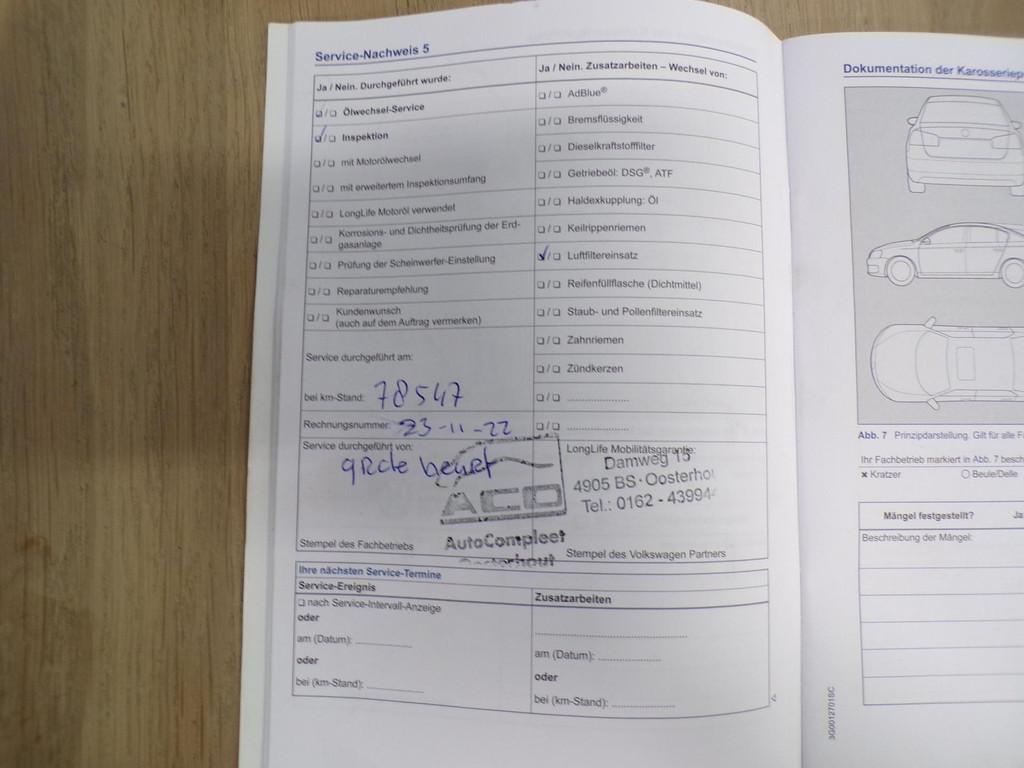 Service-Nachweis 5
Ja / Nein. Durchgeführt wurde:
Ölwechsel-Service
Inspektion
mit Motorölwechsel
mit erweitertem Inspektionsumfang
LongLife Motoröl verwendet
Korrosions- und Dichtheitsprüfung der Erd-
gasanlage
Prüfung der Scheinwerfer-Einstellung
Reparaturempfehlung
Kundenwunsch
(auch auf dem Auftrag vermerken)
Service durchgeführt am:
bei km-Stand: 78547
Rechnungsnummer: 23-11-22
Service durchgeführt von:
grote beurt
ACO
AutoCompleet
Oosterhout
Stempel des Fachbetriebs
Ja / Nein. Zusatzarbeiten – Wechsel von:
AdBlue®
Bremsflüssigkeit
Dieselkraftstofffilter
Getriebeöl: DSG®, ATF
Haldexkupplung: Öl
Keilrippenriemen
Luftfiltereinsatz
Reifenfüllflasche (Dichtmittel)
Staub- und Pollenfiltereinsatz
Zahnriemen
Zündkerzen
LongLife Mobilitätsgarantie:
Damweg 15
4905 BS · Oosterhou
Tel.: 0162 - 43994
Stempel des Volkswagen Partners
Ihre nächsten Service-Termine
Service-Ereignis
nach Service-Intervall-Anzeige
oder
am (Datum):
oder
bei (km-Stand):
Zusatzarbeiten
am (Datum):
oder
bei (km-Stand):
Dokumentation der Karosseriep
Abb. 7 Prinzipdarstellung. Gilt für alle F
Ihr Fachbetrieb markiert in Abb. 7 besch
× Kratzer
○ Beule/Delle
Mängel festgestellt? Ja
Beschreibung der Mängel:
3G0012701SC